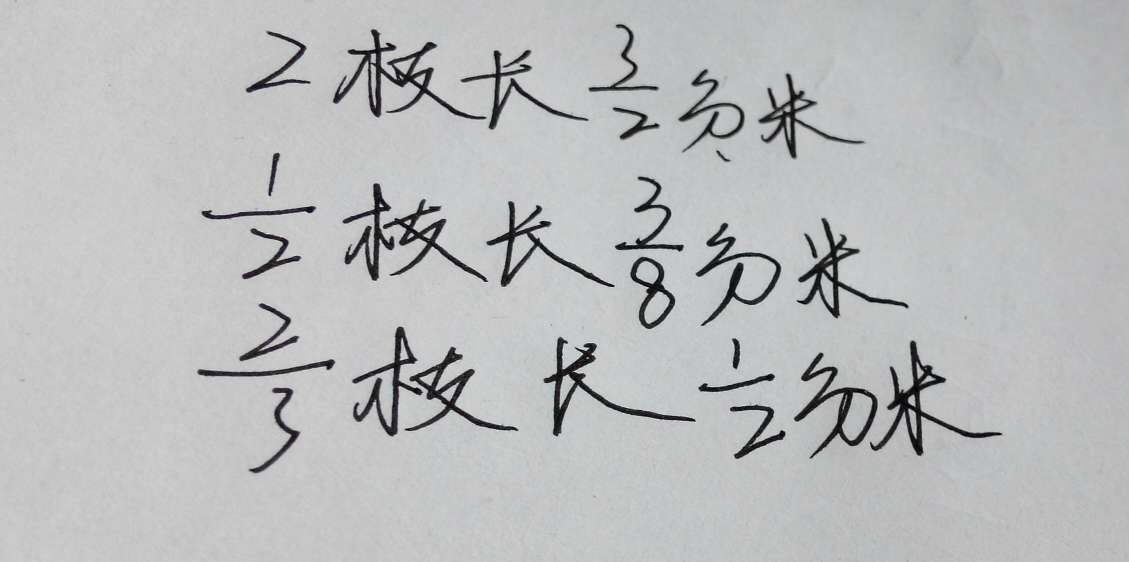 2枝长3/2分米
1/2枝长3/8分米
2/3枝长1/2分米